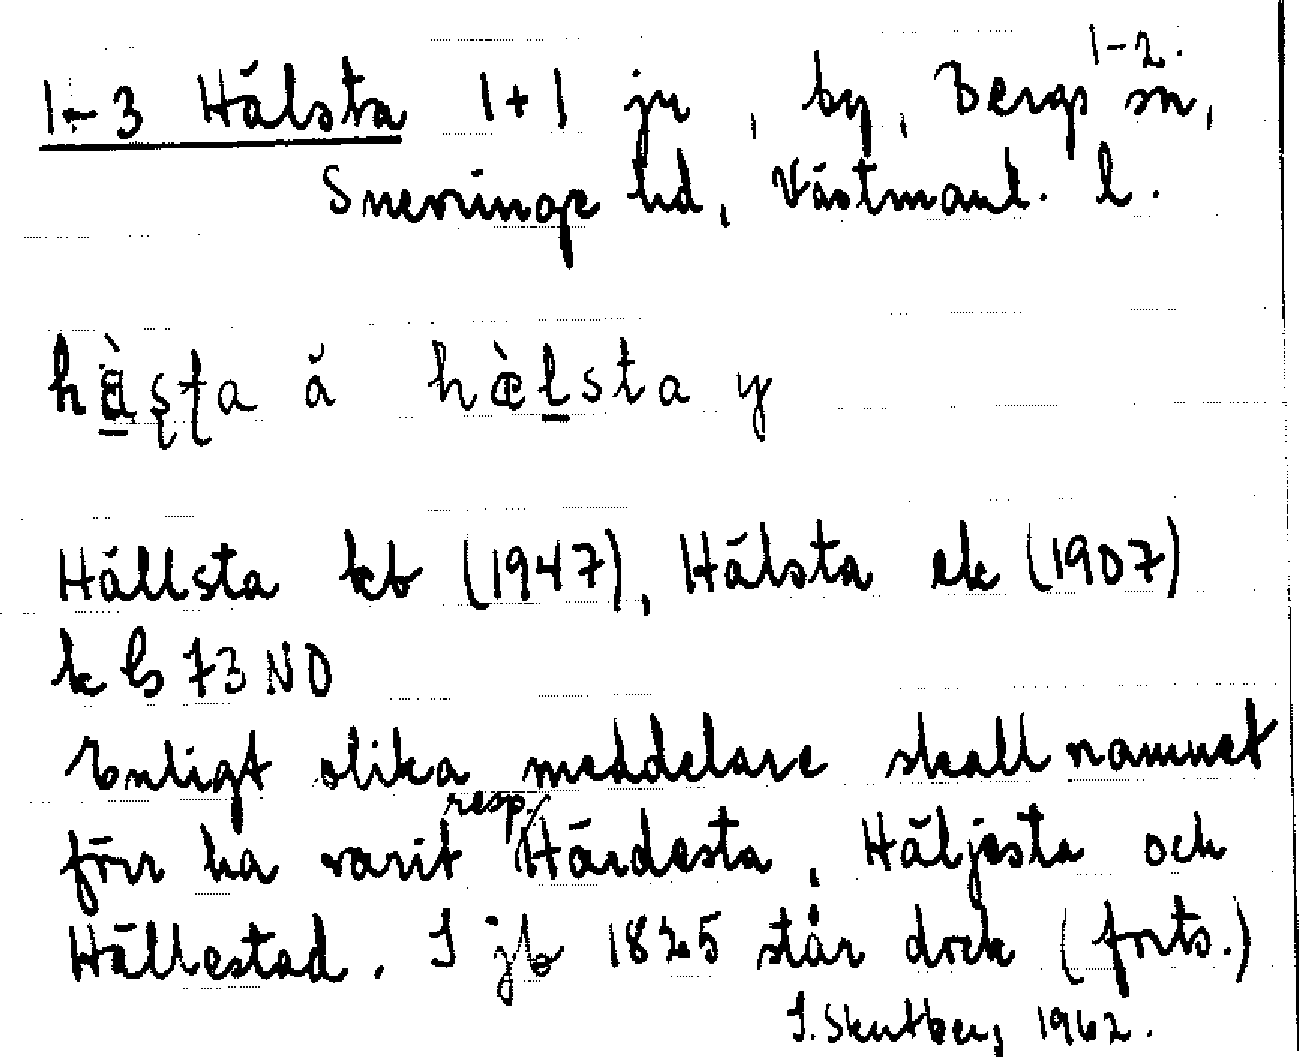 1-3 Hälsta 1+1 ju, by, Bergs sn, 1-2.
Snevringe hd, Västmanl. l.
hæ̀ʂʈa ä hæ̀lsta y
Hällsta kb (1947), Hälsta ek (1907)
k Es 73 NO
Enligt olika meddelare skall namnet
förr ha varit resp. Härdesta, Häljesta och
Hällestad. I jb 1825 står dock (forts.)
I. Skutberg 1962.